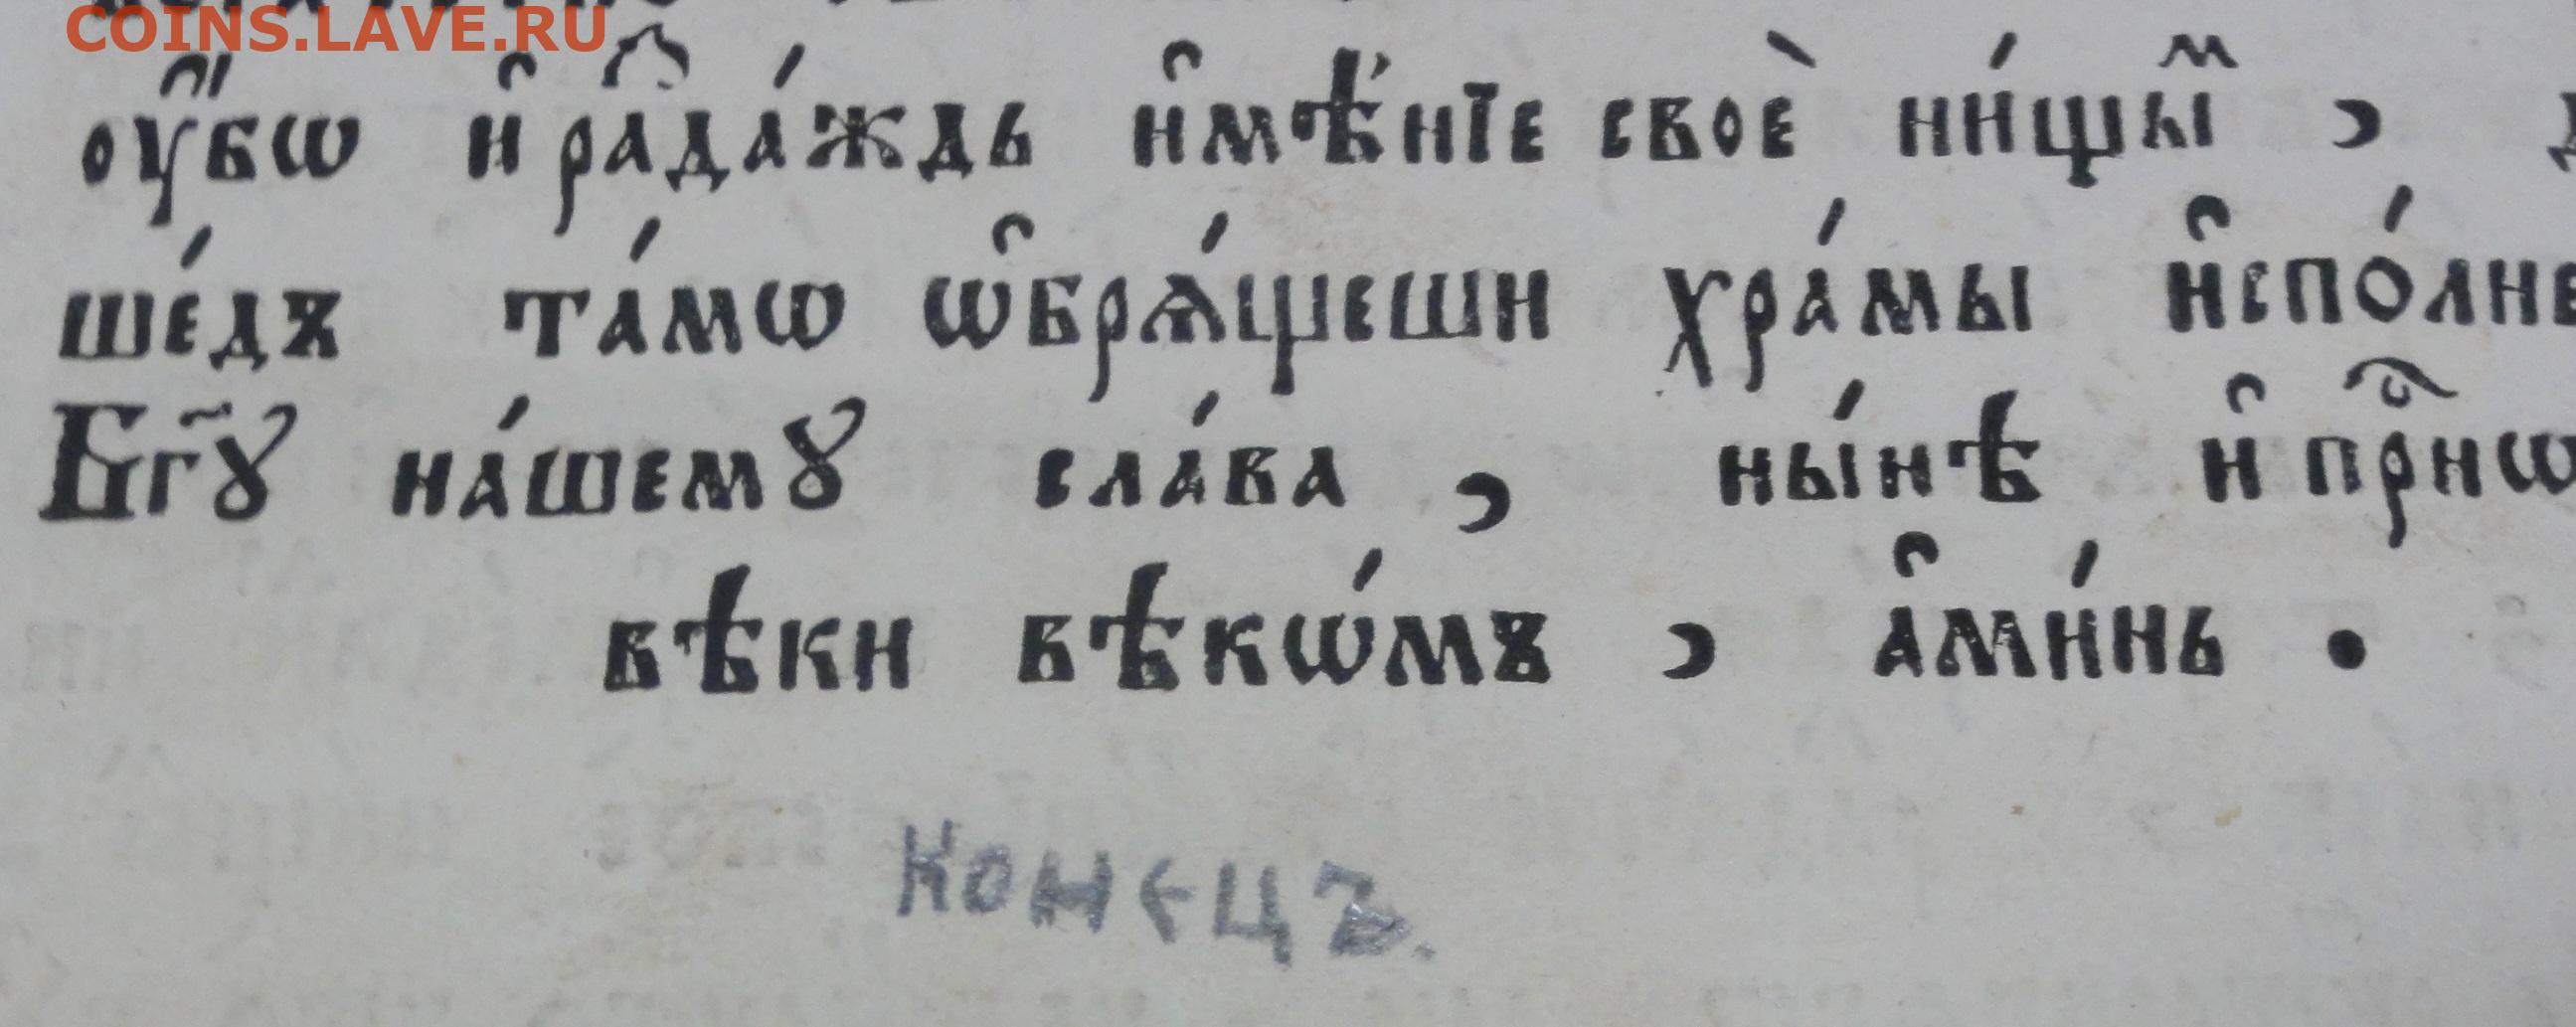 COINS.LAVE.RU
оу҆́бѡ и҆ раⷥда́ждь и҆мѣ́нїе своѐ ни́щыⷨ ,
ше́дъ та́мѡ ѡ҆брѧ́щеши хра́мы
Бг҃ꙋ на́шемꙋ сла́ва , ны́нѣ и҆ прⷭ҇нѡ
вѣки вѣкѡ́мъ , а҆ми́нь .
конецъ.